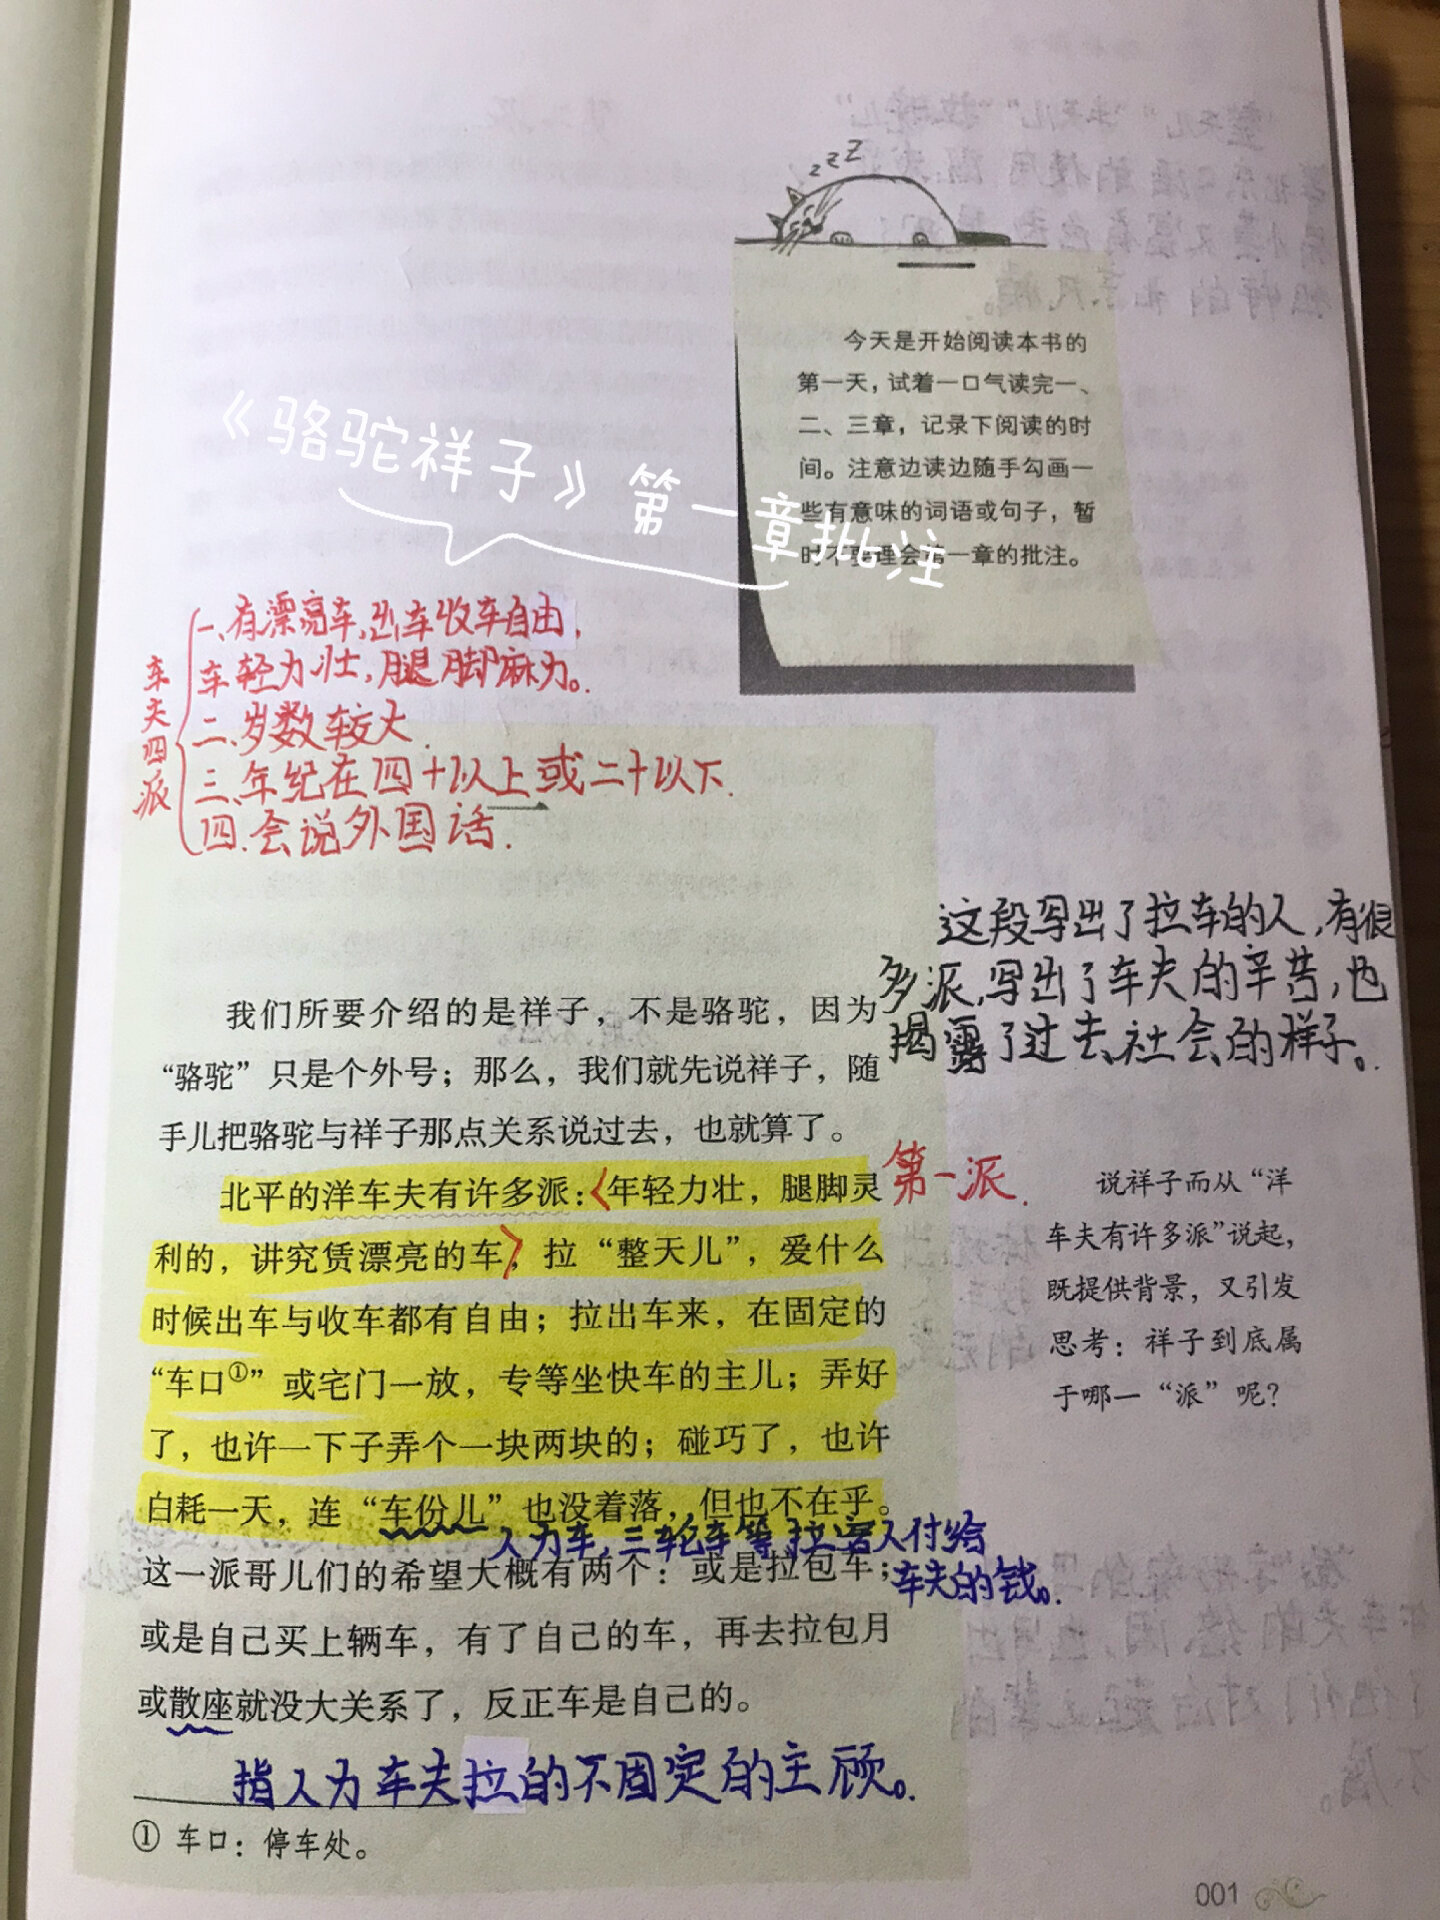 今天是开始阅读本书的
第一天，试着一口气读完一、
二、三章，记录下阅读的时
间。注意边读边随手勾画一
些有意味的词语或句子，暂
时不要理会第一章的批注。
《骆驼祥子》第一章批注
车夫四派
一、有漂亮车，出车收车自由，
车轻力壮，腿脚麻力。
二、岁数较大.
三、年纪在四十以上或二十以下.
四.会说外国话.
这段写出了拉车的人，有很
多派，写出了车夫的辛苦，也
揭露了过去社会的样子。
我们所要介绍的是祥子，不是骆驼，因为
“骆驼”只是个外号；那么，我们就先说祥子，随
手儿把骆驼与祥子那点关系说过去，也就算了。
北平的洋车夫有许多派：年轻力壮，腿脚灵
利的，讲究赁漂亮的车，拉“整天儿”，爱什么
时候出车与收车都有自由；拉出车来，在固定的
“车口①”或宅门一放，专等坐快车的主儿；弄好
了，也许一下子弄个一块两块的；碰巧了，也许
白耗一天，连“车份儿”也没着落，但也不在乎。
这一派哥儿们的希望大概有两个：或是拉包车；
或是自己买上辆车，有了自己的车，再去拉包月
或散座就没大关系了，反正车是自己的。
第一派.
说祥子而从“洋
车夫有许多派”说起，
既提供背景，又引发
思考：祥子到底属
于哪一“派”呢？
人力车，三轮车等拉客人付给
车夫的钱。
指人力车夫拉的不固定的主顾。
① 车口：停车处。
001